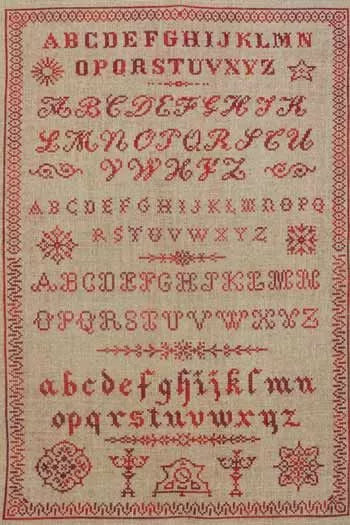 ABCDEFGHIJKLMN
OPQRSTUVXYZ
ABCDEFGHIK
LMNOPQRSTU
VWXYZ
ABCDEFGHIJKLMNOPQ
RSTUVWXYZ
ABCDEFGHJKLMN
OPQRSTUVWXYZ
abcdefghijklmn
opqrstuvwxyz